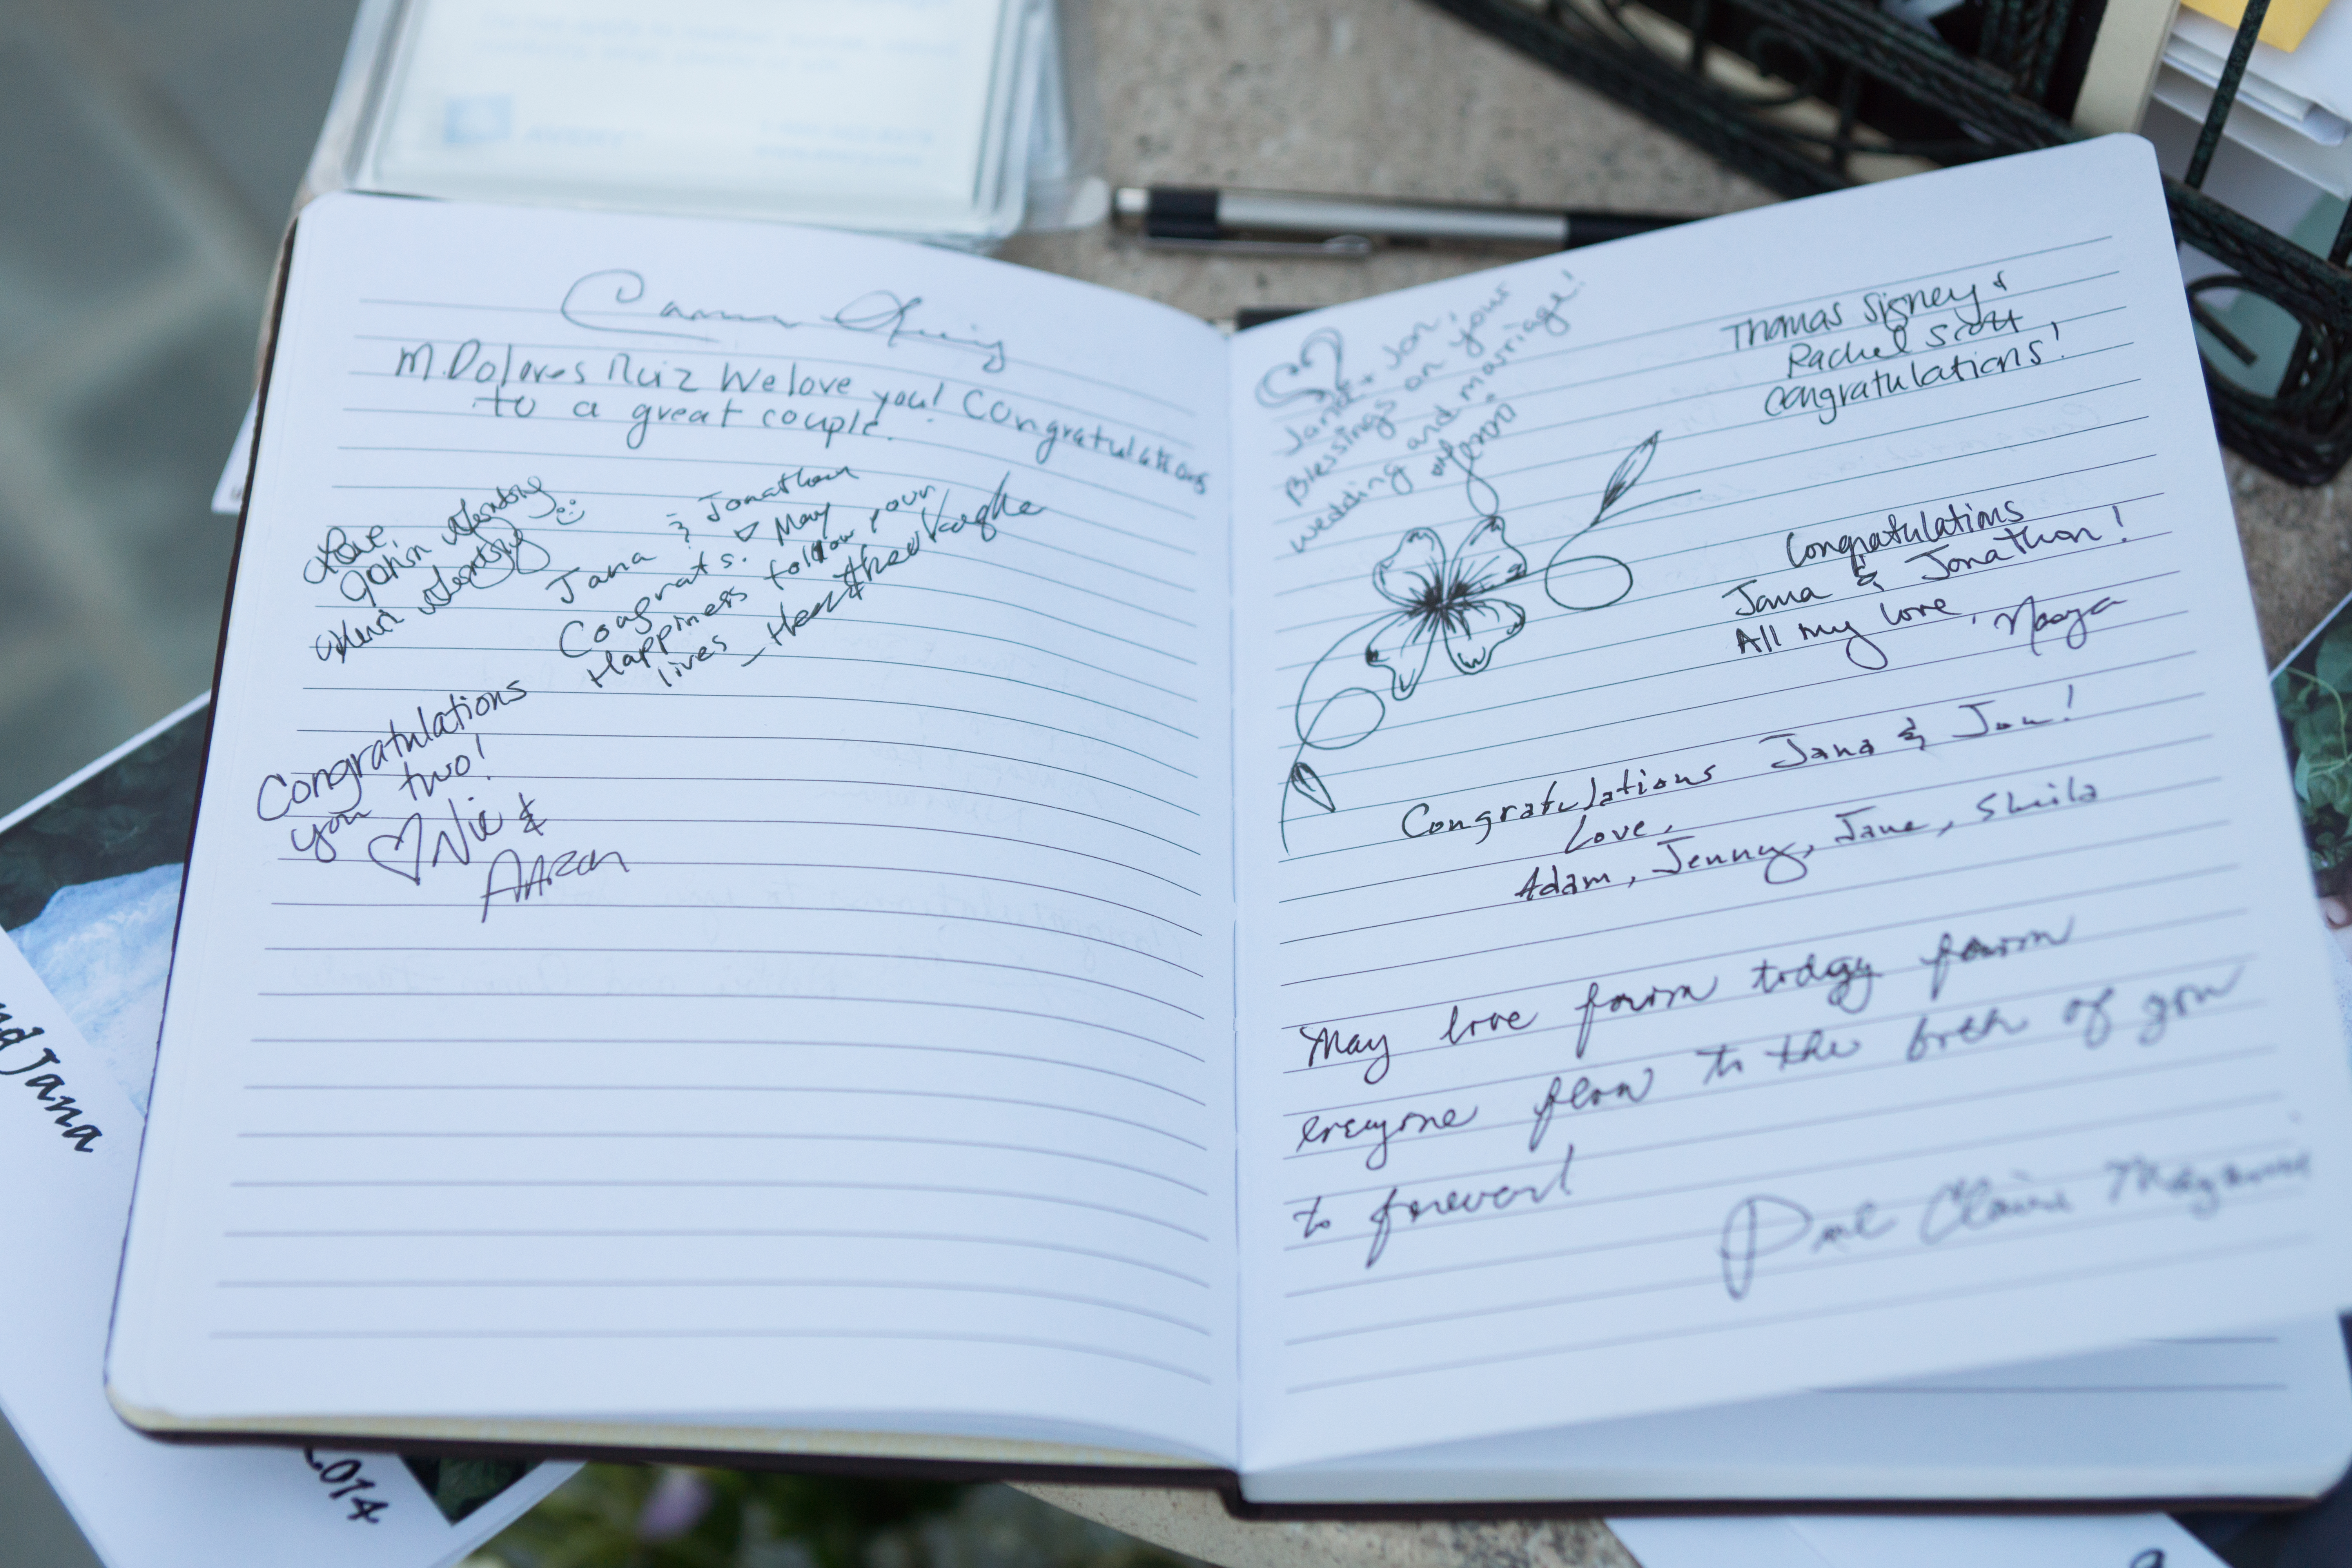 M. Dolores Ruiz We love you! Congratulations
to a great couple.
Love,
John
Jana & Jonathan
Congrats. ♡ May
Happiness follow your
lives
Congratulations
you two!
♡ Nic &
Aaron
Jana + Jon,
Blessings on your
wedding and marriage!
Thomas Signey &
Rachel Scott
Congratulations!
Congratulations
Jana & Jonathan!
All my love,
Congratulations Jana & Jon!
Love,
Adam, Jenny, Jane, Sheila
May love from today from
everyone flow to the both of you
to forever!
Claire
nd Jana
2014